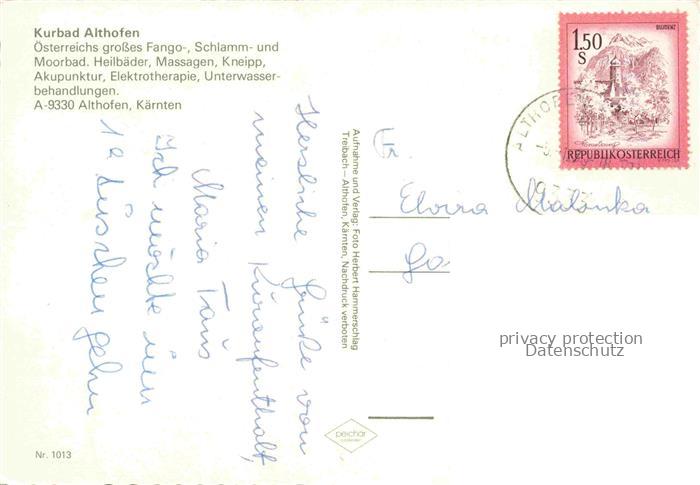 Kurbad Althofen
Österreichs großes Fango-, Schlamm- und
Moorbad. Heilbäder, Massagen, Kneipp,
Akupunktur, Elektrotherapie, Unterwasser-
behandlungen.
A-9330 Althofen, Kärnten
Herzliche Grüße von
meinen Kuraufenthalt,
Maria Taus
Ich möchte im
1 a
gehen
Aufnahme und Verlag: Foto Herbert Hammerschlag
Treibach – Althofen, Kärnten, Nachdruck verboten
Fr.
Elvira Malonka
BLUDENZ
1.50
S
REPUBLIK ÖSTERREICH
ALTHOFEN
privacy protection
Datenschutz
Nr. 1013